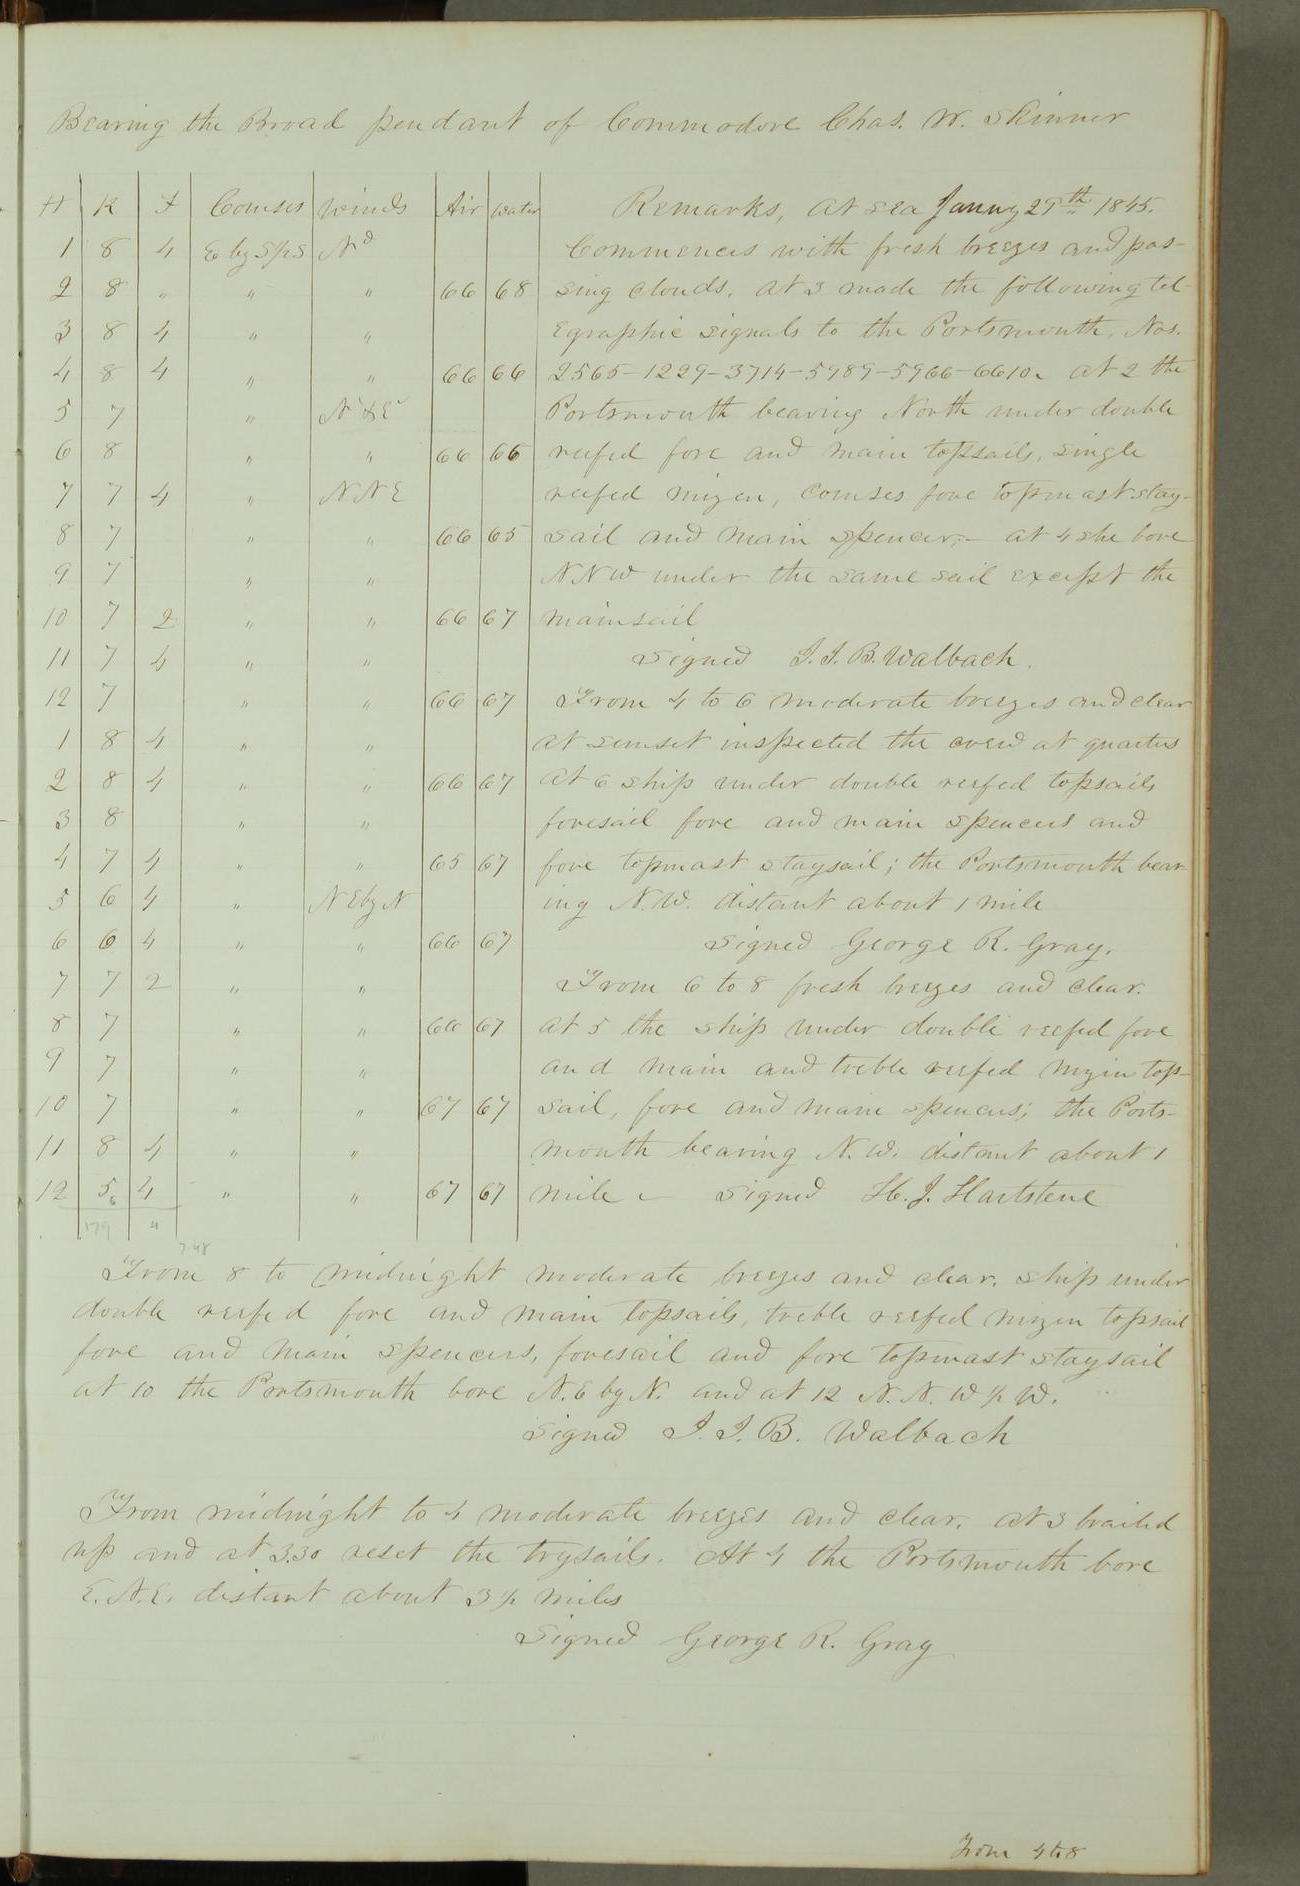 Bearing the Broad pendant of Commodore Chas. W. Skinner
H K F Courses Winds Air Water Remarks, At sea Januy 27th 1845.
1 8 4 E by S½S Nd Commences with fresh breezes and pas-
2 8 " " " 66 68 sing clouds. at 3 made the following tel-
3 8 4 " " egraphic signals to the Portsmouth, Nos.
4 8 4 " " 66 66 2565-1229-3714-5989-5966-6610. at 2 the
5 7 " Nd & Ed Portsmouth bearing North under double
6 8 " " 66 66 reefed fore and main topsails, single
7 7 4 " NNE reefed mizen, courses fore topmast stay-
8 7 " " 66 65 sail and main spencer;- at 4 she bore
9 7 " " NNW under the same sail except the
10 7 2 " " 66 67 mainsail
11 7 4 " " Signed J.J.B. Walbach.
12 7 " " 66 67 From 4 to 6 moderate breezes and clear
1 8 4 " " at sunset inspected the crew at quarters
2 8 4 " " 66 67 At 6 ship under double reefed topsails
3 8 " " foresail fore and main spencers and
4 7 4 " " 65 67 fore topmast staysail; the Portsmouth bear-
5 6 4 " NEbyN ing N.W. distant about 1 mile
6 6 4 " " 66 67 Signed George R. Gray.
7 7 2 " " From 6 to 8 fresh breezes and clear.
8 7 " " 66 67 at 5 the ship under double reefed fore
9 7 " " and main and treble reefed mizen top-
10 7 " " 67 67 sail, fore and main spencers; the Ports-
11 8 4 " " mouth bearing N.W. distant about 1
12 5 6 4 " " 67 67 mile - Signed H.J. Hartstene
179 "
7.48
From 8 to midnight moderate breezes and clear. Ship under
double reefed fore and main topsails, treble reefed mizen topsail
fore and main spencers, foresail and fore topmast staysail
at 10 the Portsmouth bore N.E by N. and at 12 N.N.W½W.
Signed J.J.B. Walbach
From midnight to 4 moderate breezes and clear. at 3 brailed
up and at 3.30 reset the trysails. At 4 the Portsmouth bore
E.N.E. distant about 3½ miles
Signed George R. Gray
From 4 to 8